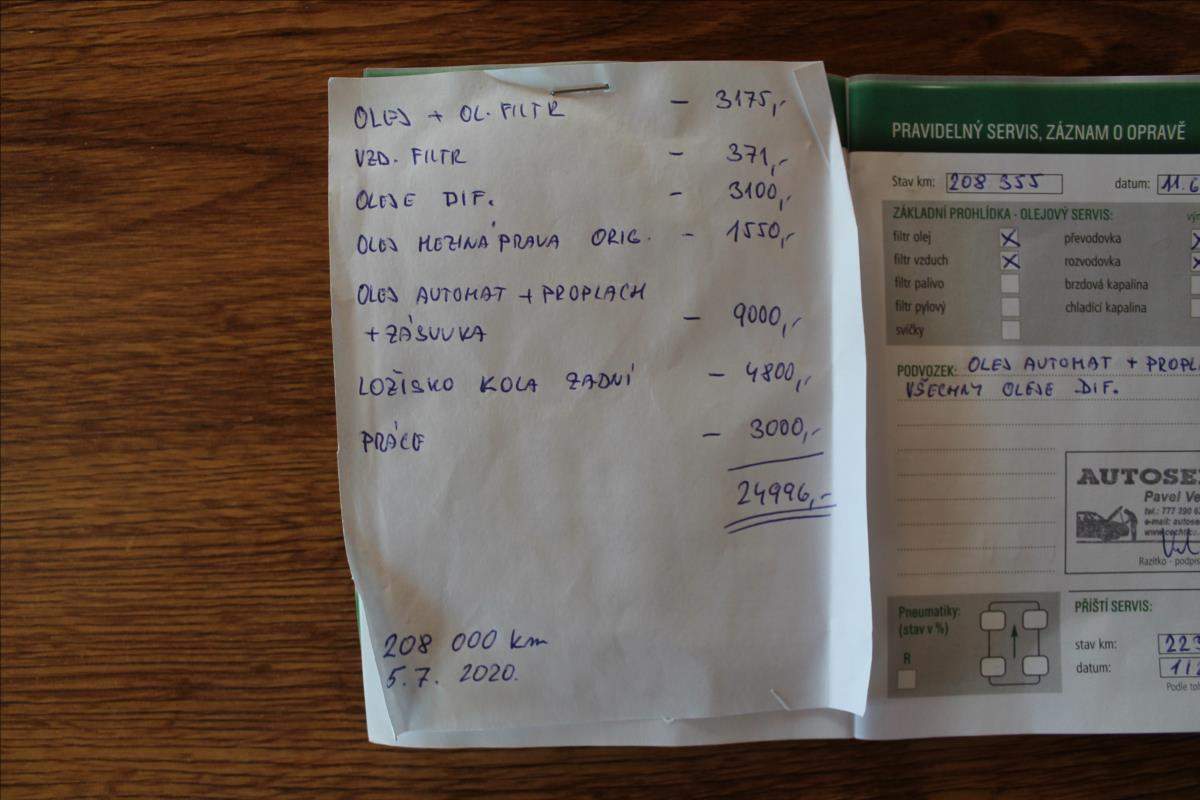 OLEJ + OL. FILTR - 3175,-
VZD. FILTR - 371,-
OLEJE DIF. - 3100,-
OLEJ MEZINÁPRAVA ORIG. - 1550,-
OLEJ AUTOMAT + PROPLACH
+ ZÁSUVKA - 9000,-
LOŽISKO KOLA ZADNÍ - 4800,-
PRÁCE - 3000,-
24996,-
208 000 km
5.7. 2020.
PRAVIDELNÝ SERVIS, ZÁZNAM O OPRAVĚ
Stav km: 208 355 datum: 11.6
ZÁKLADNÍ PROHLÍDKA - OLEJOVÝ SERVIS:
filtr olej X převodovka X
filtr vzduch X rozvodovka X
filtr palivo brzdová kapalina
filtr pylový chladící kapalina
svíčky
PODVOZEK: OLEJ AUTOMAT + PROPL
VŠECHNY OLEJE DIF.
AUTOSE
Pavel Ve
tel.: 777 390 6
e-mail: autose
Razítko - podpi
Pneumatiky:
(stav v %)
R
PŘÍŠTÍ SERVIS:
stav km: 223
datum: 112
Podle toh